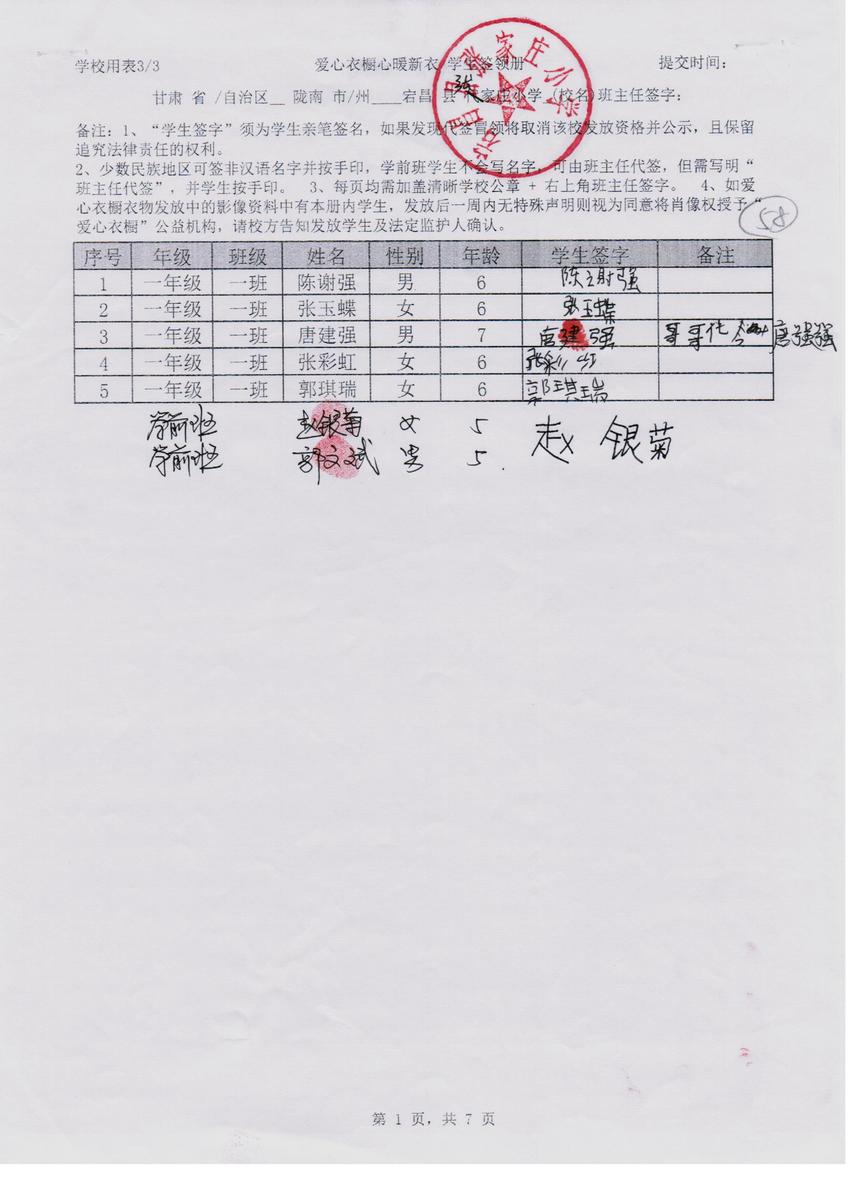 学校用表3/3 爱心衣橱心暖新衣 学生签领册 提交时间：
宕昌县张家庄小学
甘肃 省 /自治区__ 陇南 市/州____宕昌 县 张家庄小学 (校名)班主任签字：
备注：1、“学生签字”须为学生亲笔签名，如果发现代签冒领将取消该校发放资格并公示，且保留
追究法律责任的权利。
2、少数民族地区可签非汉语名字并按手印，学前班学生不会写名字，可由班主任代签，但需写明“
班主任代签”，并学生按手印。 3、每页均需加盖清晰学校公章 + 右上角班主任签字。 4、如爱
心衣橱衣物发放中的影像资料中有本册内学生，发放后一周内无特殊声明则视为同意将肖像权授予“
爱心衣橱”公益机构，请校方告知发放学生及法定监护人确认。
58
序号 年级 班级 姓名 性别 年龄 学生签字 备注
1 一年级 一班 陈谢强 男 6 陈谢强
2 一年级 一班 张玉蝶 女 6 张玉蝶
3 一年级 一班 唐建强 男 7 唐建强 哥哥代 唐强强
4 一年级 一班 张彩虹 女 6 张彩虹
5 一年级 一班 郭琪瑞 女 6 郭琪瑞
学前班 赵银菊 女 5 赵银菊
学前班 郭文斌 男 5.
第 1 页，共 7 页